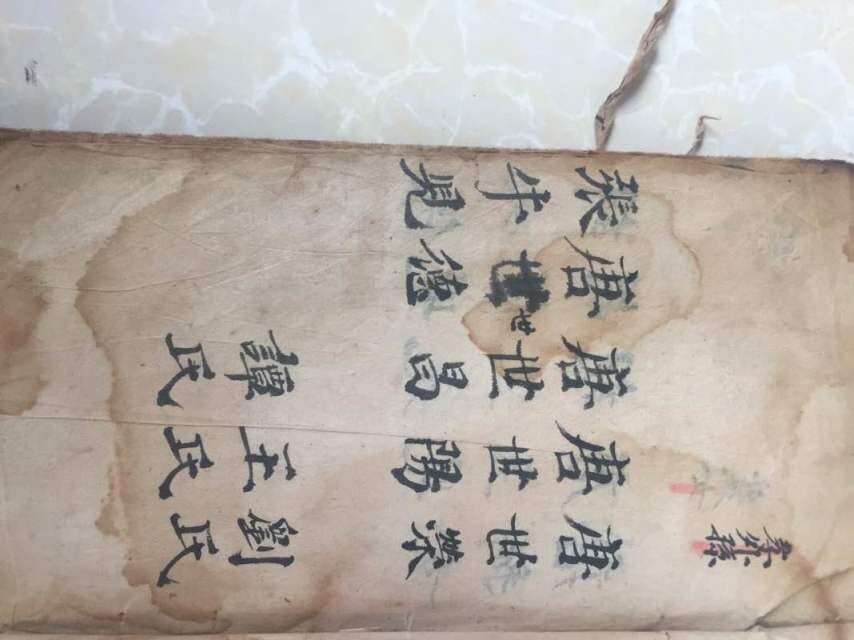 唐世榮劉氏
唐世陽王氏
唐世昌譚氏
唐世世德
張牛見